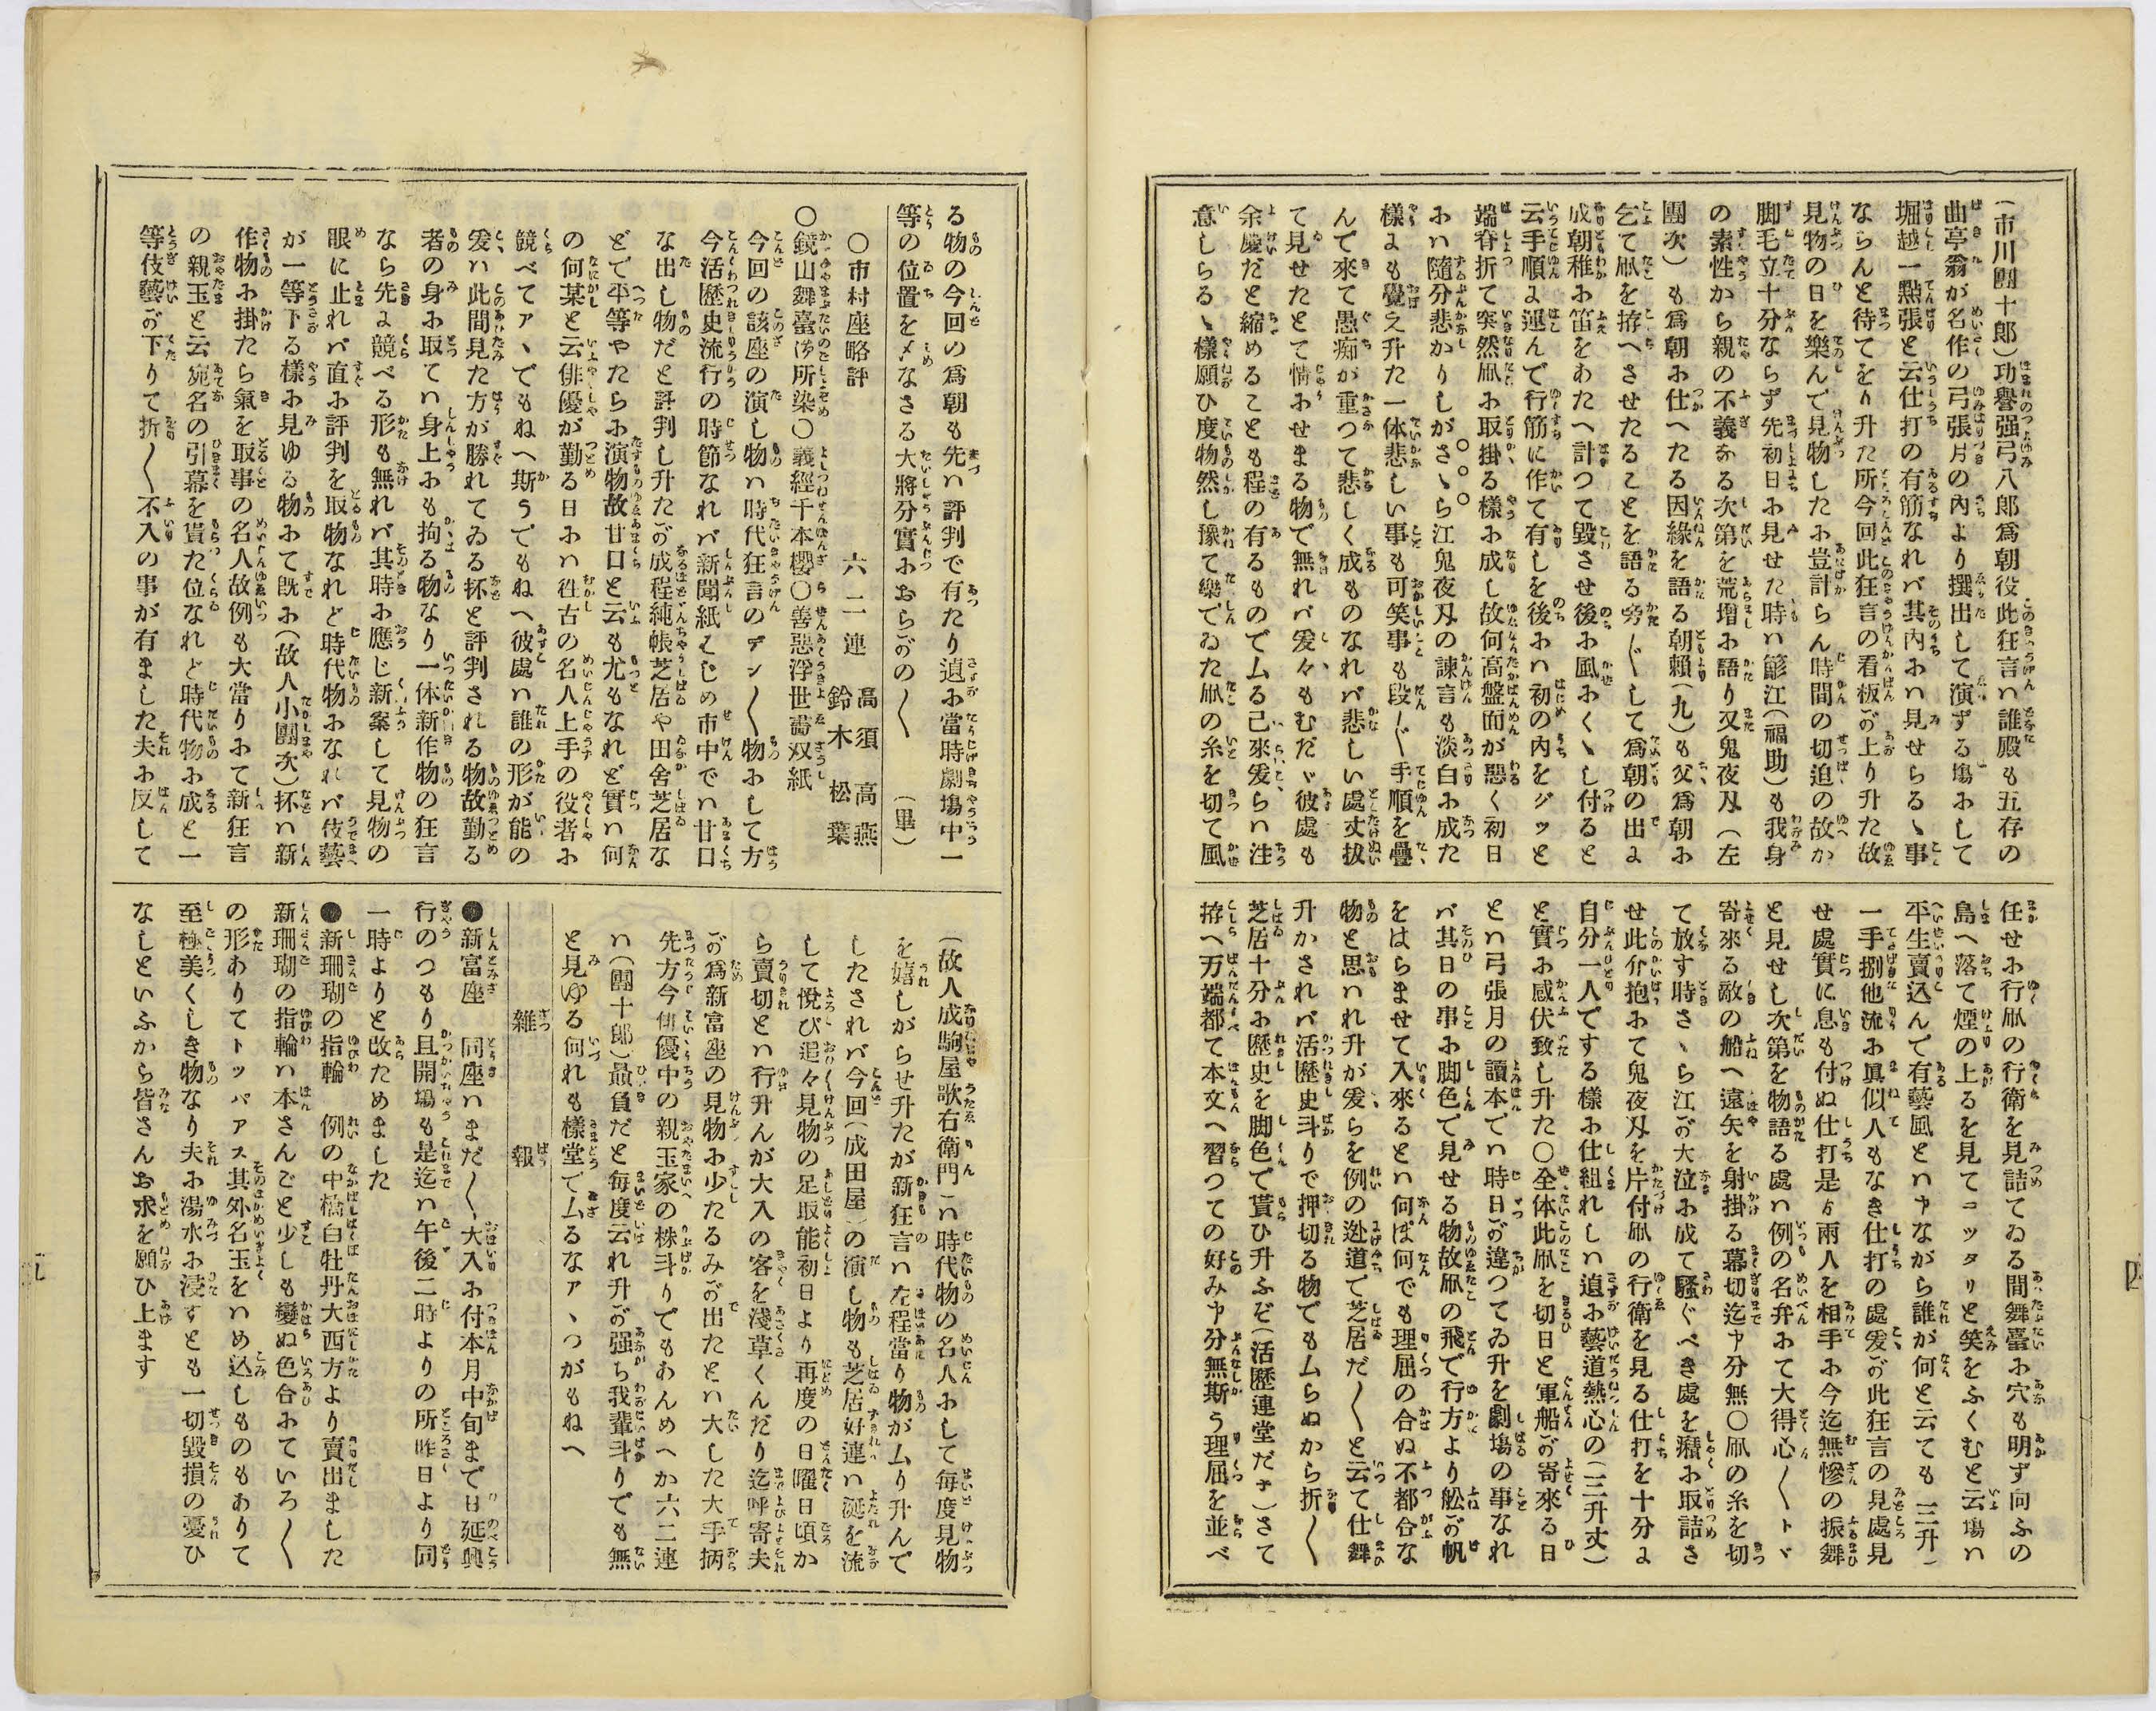 (市川團十郎)功譽强弓八郎爲朝役此狂言ハ誰殿も五存の
曲亭翁が名作の弓張月の內より撰出して演ずる塲おして
堀越一點張と云仕打の有筋なれバ其內おハ見せらるゝ事
ならんと待てをり升た所今回此狂言の看板が上り升た故
見物の日を樂んで見物したお豈計らん時間の切迫の故か
脚毛立十分ならず先初日お見せた時ハ簓江(福助)も我身
の素性から親の不義なる次第を荒增お語り又鬼夜刄(左
團次)も爲朝お仕へたる因緣を語る朝賴(九)も父爲朝お
乞て凧を拵へさせたることを語る旁〲して爲朝の出よ
成朝稚お笛をわたへ計つて毀させ後お風おくゝし付ると
云手順よ運んで行筋に作て有しを後おハ初の內をグッと
端脊折て突然凧お取掛る樣お成し故何高盤面が惡く初日
おハ隨分悲かりしがさゝら江鬼夜刄の諫言も淡白お成た
樣よも覺え升た一体悲しい事も可笑事も段〲手順を疊
んで來て愚痴が重つて悲しく成ものなれバ悲しい處丈拔
て見せたとて情おせまる物で無れバ爰々もむだゞ彼處も
余慶だと縮めることも程の有るもので厶る己來爰らハ注
意しらるゝ樣願ひ度物然し豫て樂でゐた凧の糸を切て風
任せお行凧の行衛を見詰てゐる間舞臺お穴も明ず向ふの
島へ落て煙の上るを見てコッタリと笑をふくむと云塲ハ
平生賣込んで有藝風とハ申ながら誰が何と云ても三升一
一手捌他流お眞似人もなき仕打の處爰が此狂言の見處見
せ處實に息も付ぬ仕打是ゟ兩人を相手お今迄無慘の振舞
と見せし次第を物語る處ハ例の名弁おて大得心〱トヾ
寄來る敵の船へ遠矢を射掛る幕切迄申分無〇凧の糸を切
て放す時さゝら江が大泣お成て騷ぐべき處を癪お取詰さ
せ此介抱おて鬼夜刄を片付凧の行衛を見る仕打を十分よ
自分一人でする樣お仕組れしハ遉お藝道熱心の(三升丈)
と實お感伏致し升た〇全体此凧を切日と軍船が寄來る日
とハ弓張月の讀本でハ時日が違つてゐ升を劇塲の事なれ
バ其日の事お脚色で見せる物故凧の飛で行方より舩が帆
をはらませて入來るとハ何ぼ何でも理屈の合ぬ不都合な
物と思ハれ升が爰らを例の迯道で芝居だ〱と云て仕舞
升かされバ活歷史斗りで押切る物でも厶らぬから折〱
芝居十分お歷史を脚色で貰ひ升ふぞ(活歷連堂だネ)さて
拵へ万端都て本文へ習つての好み申分無斯う理屈を並べ
る物の今回の爲朝も先ハ評判で有たり遉お當時劇塲中一
等の位置を〆なさる大將分實おおらがの〱　(畢)
〇市村座略評
六二連　高須　高燕
鈴木　松葉
〇鏡山舞臺が所染〇義經千本櫻〇善惡浮世畵双紙
今回の該座の演し物ハ時代狂言のデン〱物おして方
今活歷史流行の時節なれバ新聞紙はじめ市中でハ甘口
な出し物だと評判し升たが成程純帳芝居や田舍芝居な
どで平等やたらお演物故甘口と云も尤もなれど實ハ何
の何某と云俳優が勤る日おハ徃古の名人上手の役者お
鏡べてアヽでもねへ斯うでもねへ彼處ハ誰の形が能の
爰ハ此間見た方が勝れてゐる抔と評判される物故勤る
者の身お取てハ身上おも拘る物なり一体新作物の狂言
なら先よ競べる形も無れバ其時お應じ新案して見物の
眼に止れバ直お評判を取物なれど時代物おなれバ伎藝
が一等下る樣お見ゆる物おて既お(故人小團次)抔ハ新
作物お掛たら氣を取事の名人故例も大當りおて新狂言
の親玉と云宛名の引幕を貰た位なれど時代物お成と一
等伎藝が下りて折〱不入の事が有ました夫お反して
(故人成駒屋歌右衛門)ハ時代物の名人おして每度見物
を嬉しがらせ升たが新狂言ハ左程當り物が厶り升んで
したされバ今回(成田屋)の演し物も芝居好連ハ涎を流
して悅び追々見物の足取能初日より再度の日曜日頃か
ら賣切とハ行升んが大入の客を淺草くんだり迄呼寄夫
が爲新富座の見物お少たるみが出たとハ大した大手柄
先方今俳優中の親玉家の株斗りでもわんめへか六二連
ハ(團十郎)贔負だと每度云れ升が强ち我輩斗りでも無
と見ゆる何れも樣堂で厶るなアヽつがもねへ
雜報
●新富座　同座ハまだ〱大入お付本月中旬まで日延興
行のつもり且開塲も是迄ハ午後二時よりの所昨日より同
一時よりと改ためました
●新珊瑚の指輪　例の中橋白牡丹大西方より賣出ました
新珊瑚の指輪ハ本さんごと少しも變ぬ色合おていろ〱
の形わりてトッパアス其外名玉をハめ込しものもありて
至極美くしき物なり夫お湯水お浸すとも一切毀損の憂ひ
なしといふから皆さんお求を願ひ上ます
四
五